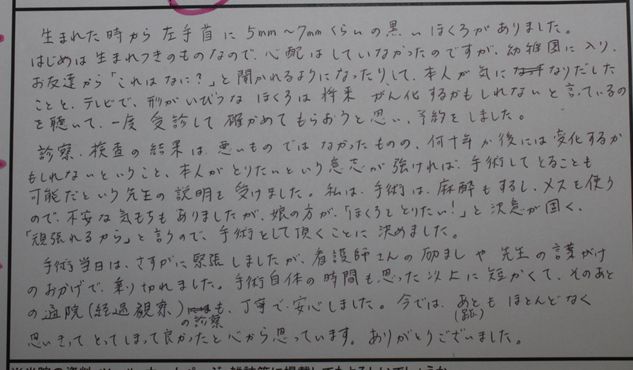 生まれた時から左手首に5mm〜7mmくらいの黒いほくろがありました。
はじめは生まれつきのものなので、心配はしていなかったのですが、幼稚園に入り、
お友達から「これはなに?」と聞かれるようになったりして、本人が気になりだした
ことと、テレビで、形がいびつなほくろは将来がん化するかもしれないと言っているの
を聴いて、一度受診して確かめてもらおうと思い、予約をしました。
診察、検査の結果は、悪いものではなかったものの、何十年か後には変化するか
もしれないということ、本人がとりたいという意志が強ければ、手術してとることも
可能だという先生の説明を受けました。私は、手術は、麻酔もするし、メスを使う
ので、不安な気もちもありましたが、娘の方が、「ほくろをとりたい!」と決意が固く、
「頑張れるから」と言うので、手術をして頂くことに決めました。
手術当日は、さすがに緊張しましたが、看護師さんの励ましや先生の言葉がけ
のおかげで、乗り切れました。手術自体の時間も思った以上に短かくて、そのあと
の通院(経過観察)の診察も、丁寧で、安心しました。今では、あと(跡)もほとんどなく
思いきってとってしまって良かったと心から思っています。ありがとうございました。